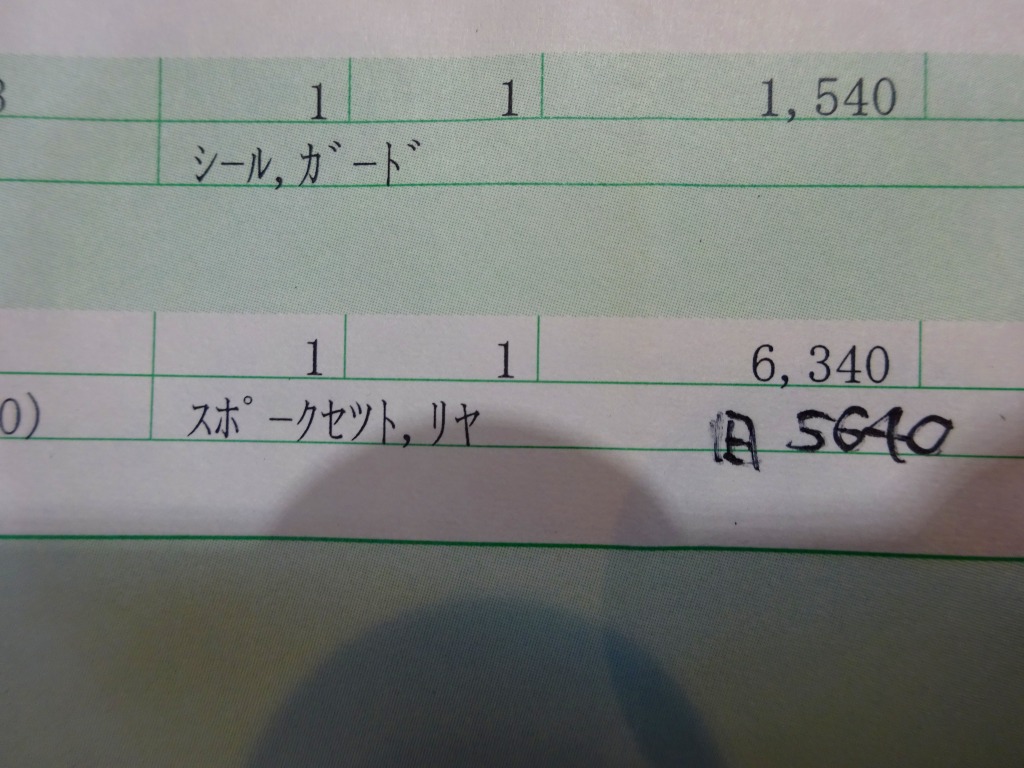 1 1 1,540
シール,ガード
1 1 6,340
0) スポークセツト,リヤ
旧 5640